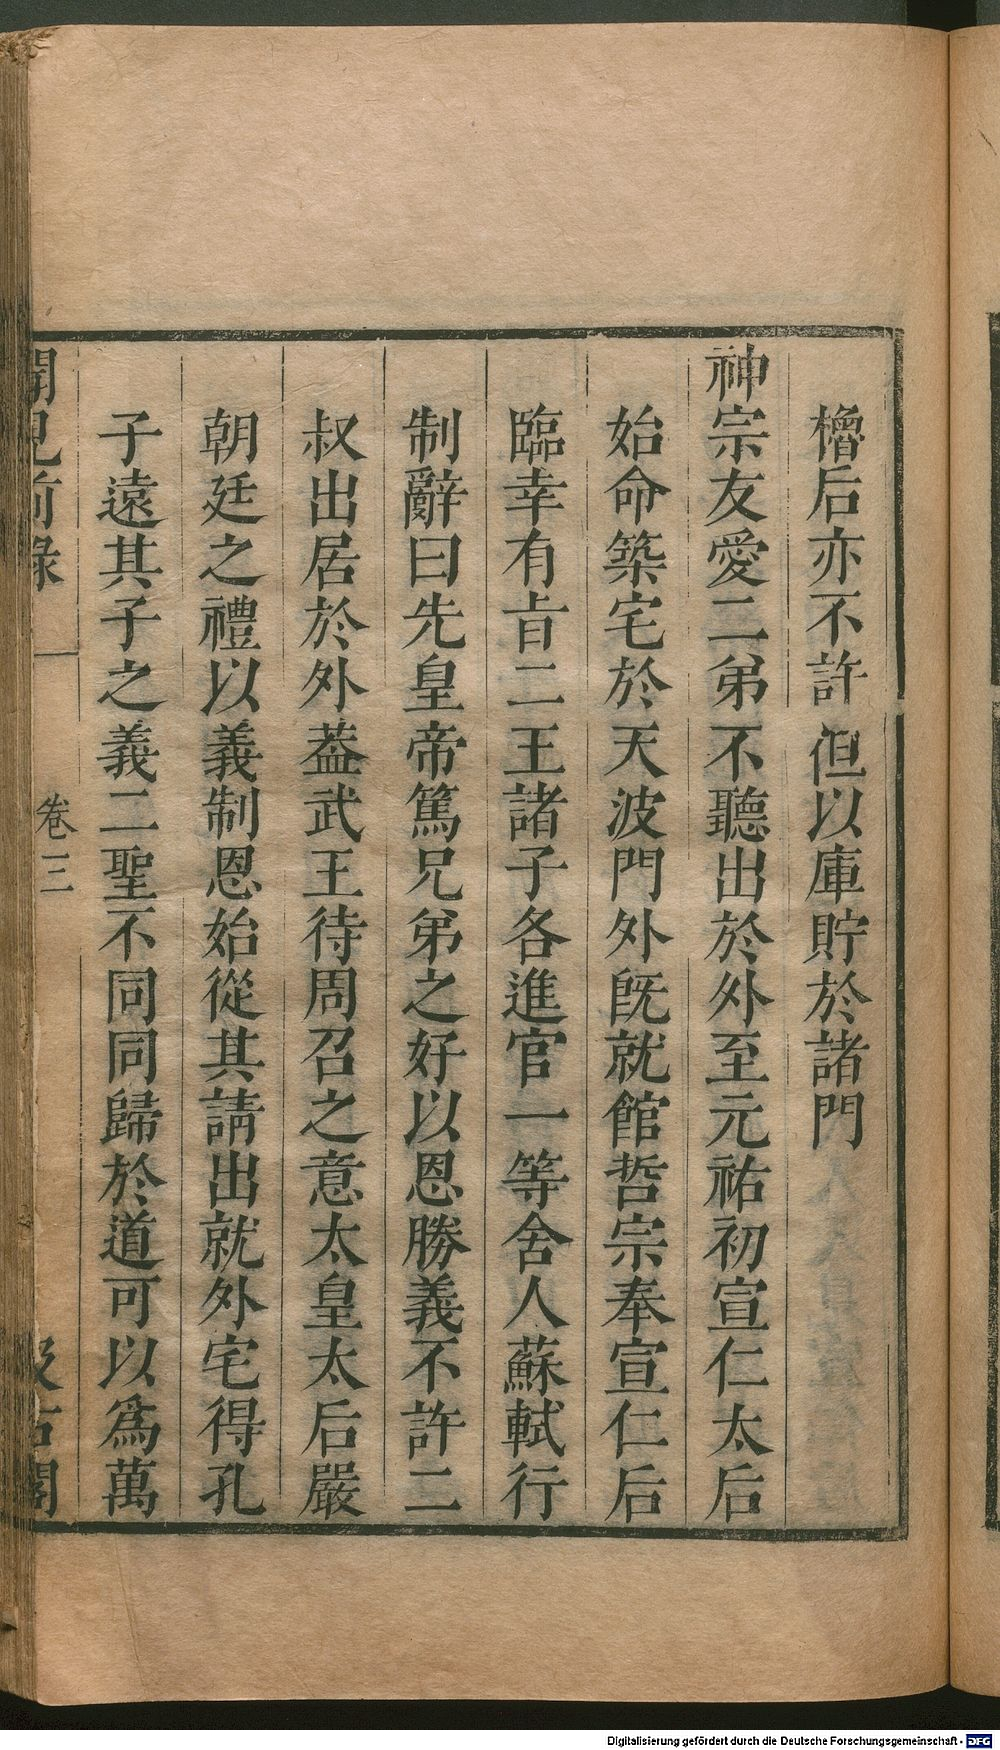 櫓后亦不許但以庫貯於諸門
神宗友愛二弟不聽出於外至元祐初宣仁太后
始命築宅於天波門外旣就館哲宗奉宣仁后
臨幸有㫖二王諸子各進官一等舍人蘇軾行
制辭曰先皇帝篤兄弟之好以恩勝義不許二
叔出居於外葢武王待周召之意太皇太后嚴
朝廷之禮以義制恩始從其請出就外宅得孔
子遠其子之義二聖不同同歸於道可以爲萬
聞見前錄 卷三 汲古閣
Digitalisierung gefördert durch die Deutsche Forschungsgemeinschaft - DFG